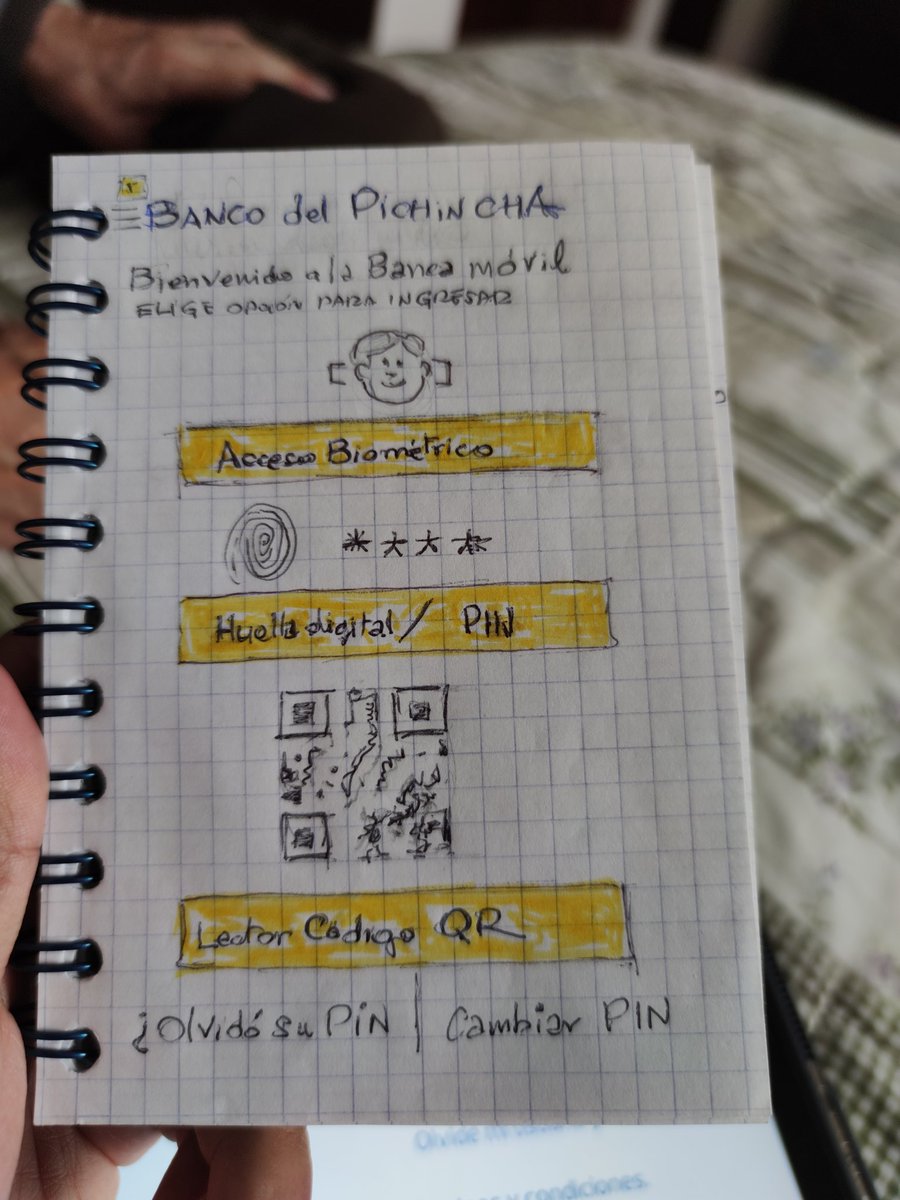 BANCO del PICHINCHA
Bienvenido a la Banca móvil
ELIGE OPCIÓN PARA INGRESAR
Acceso Biométrico
* * * *
Huella digital / PIN
Lector Código QR
¿Olvidó su PIN | Cambiar PIN
Olvidé mi
y condiciones.